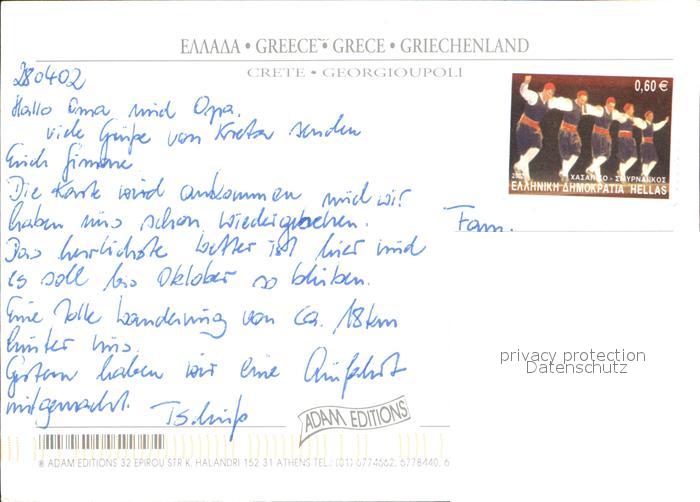 ΕΛΛΑΔΑ • GREECE • GRECE • GRIECHENLAND
CRETE • GEORGIOUPOLI
280402
Hallo Oma und Opa.
viele Grüße von Kreta senden
Euch Simone
Die Karte wird ankommen und wir
haben uns schon wiedergesehen.
Das herrlichste Wetter ist hier und
es soll bis Oktober so bleiben.
Eine tolle Wanderung von ca. 18 km
hinter uns.
Gestern haben wir eine
mitgemacht. Tschüß
0,60 €
ΧΑΣΑΠΙΚΟ - ΣΜΥΡΝΑΙΙΚΟΣ
ΕΛΛΗΝΙΚΗ ΔΗΜΟΚΡΑΤΙΑ HELLAS
Fam.
privacy protection
Datenschutz
ADAM EDITIONS
® ADAM EDITIONS 32 EPIROU STR K. HALANDRI 152 31 ATHENS TEL.: (01) 6774662, 6778440, 6